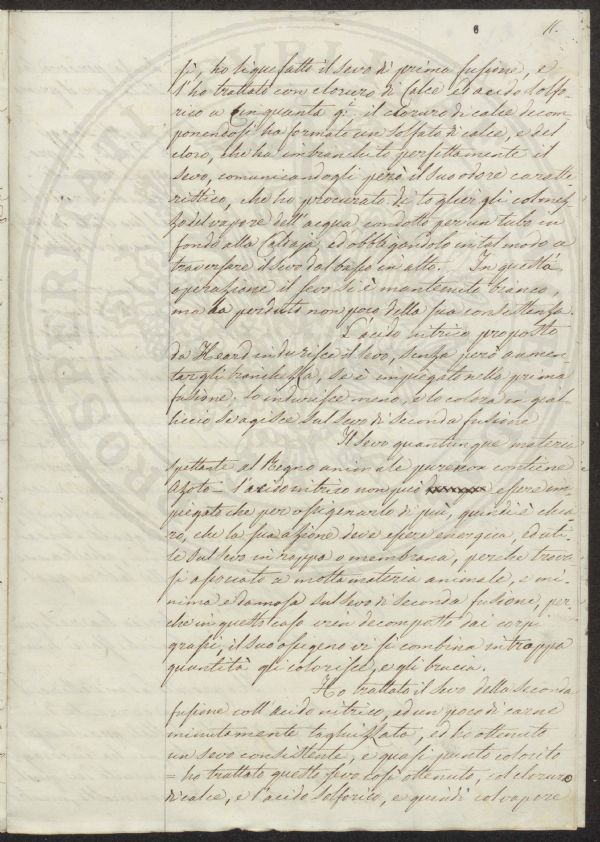 11.
si, ho liquefatto il sevo di prima fusione, e
l'ho trattato con cloruro di calce ed acido solfo-
rico a cinquanta g.i il cloruro di calce decom-
ponendosi ha formato un solfato di calce, e del
cloro, che ha imbianchito perfettamente il
sevo, comunicandogli però il suo odore caratte-
ristico, che ho procurato di toglier gli col mez-
zo del vapore dell'acqua condotto per un tubo in
fondo alla caldaja, ed obbligandolo in tal modo a
traversare il sevo dal basso in alto. In questa
operazione il sevo si è mantenuto bianco,
ma ha perduto non poco della sua consistenza.
L'acido nitrico proposto
da Heard indurisce il sevo, senza però aumen-
targli bianchezza, se è impiegato nella prima
fusione; lo indurisce meno, e lo colora in gial-
liccio se agisce sul sevo di seconda fusione
Il sevo quantunque materia
spettante al Regno animale pure non contiene
Azoto = l'acido nitrico non può essere im-
piegato che per ossigenarlo di più, quindi è chia-
ro, che la sua azione deve essere energica, ed uti-
le sul sevo in rappa o membrana, perchè trova-
si associato a molta materia animale, e mi-
nima e dannosa sul sevo di seconda fusione, per-
chè in questo caso vien decomposto dai corpi
grassi, il suo ossigeno vi si combina in troppa
quantità gli colorisce, e gli brucia.
Ho trattato il sevo della seconda
fusione coll'acido nitrico, ed un poco di carne
minutamente tagliuzzata, ed ho ottenuto
un sevo consistente, e quasi punto colorito
= ho trattato questo sevo così ottenuto, col cloruro
di calce, e l'acido solforico, e quindi col vapore